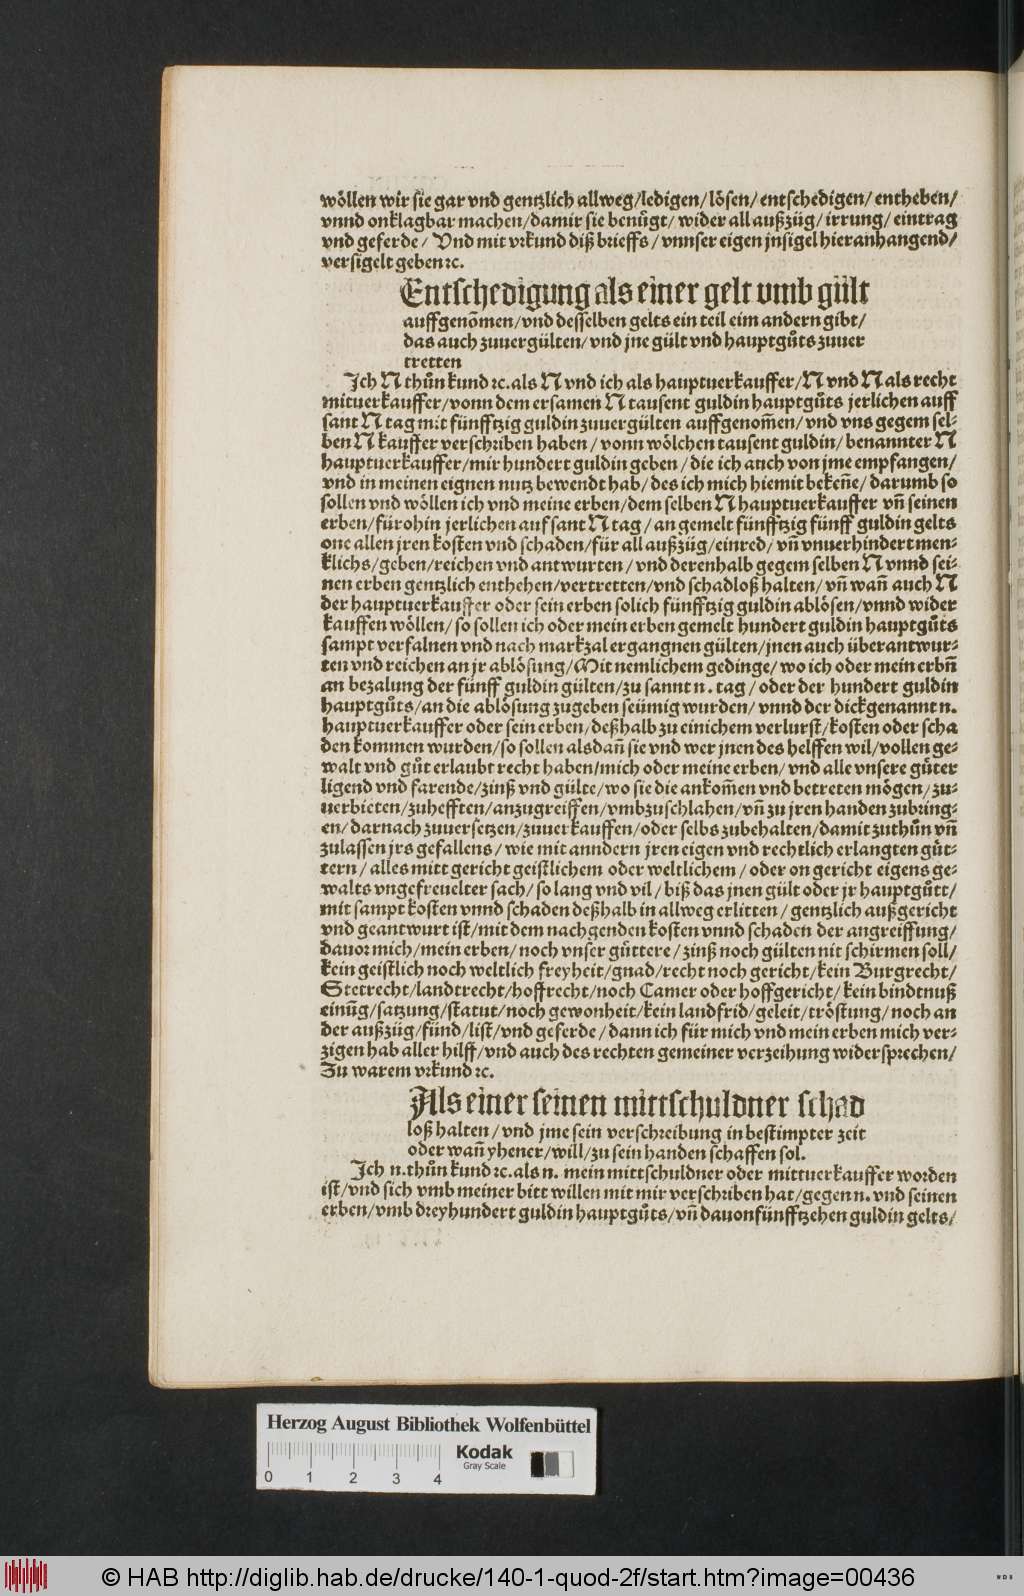 wöllen wir sie gar vnd gentzlich allweg/ledigen/lösen/entschedigen/entheben/
vnnd onklagbar machen/damir sie benůgt/wider all außzüg/irrung/eintrag
vnd geferde/ Vnd mit vrkund diß brieffs/vnnser eigen jnsigel hieran hangend/
versigelt geben ꝛc.
Entschedigung als einer gelt vmb gült
auffgenõmen/vnd desselben gelts ein teil eim andern gibt/
das auch zuuergülten/vnd jne gült vnd hauptgůts zuuer
tretten
Jch N thůn kund ꝛc. als N vnd ich als hauptuerkauffer/N vnd N als recht
mituerkauffer/vonn dem ersamen N tausent guldin hauptgůts jerlichen auff
sant N tag mit fünfftzig guldin zuuergülten auffgenom̃en/vnd vns gegem sel-
ben N kauffer verschriben haben/vonn wölchen tausent guldin/benannter N
hauptuerkauffer/mir hundert guldin geben/die ich auch von jme empfangen/
vnd in meinen eignen nutz bewendt hab/des ich mich hiemit bekeñe/darumb so
sollen vnd wöllen ich vnd meine erben/dem selben N hauptuerkauffer vñ seinen
erben/fürohin jerlichen auf sant N tag/an gemelt fünfftzig fünff guldin gelts
one allen jren kosten vnd schaden/für all außzüg/einred/vñ vnuerhindert men-
klichs/geben/reichen vnd antwurten/vnd derenhalb gegem selben N vnnd sei-
nen erben gentzlich enthehen/vertretten/vnd schadloß halten/vñ wañ auch N
der hauptuerkauffer oder sein erben solich fünfftzig guldin ablösen/vnnd wider
kauffen wöllen/so sollen ich oder mein erben gemelt hundert guldin hauptgůts
sampt verfalnen vnd nach markzal ergangnen gülten/jnen auch überantwur-
ten vnd reichen an jr ablösung/Mit nemlichem gedinge/wo ich oder mein erbñ
an bezalung der fünff guldin gülten/zu sannt n. tag/oder der hundert guldin
hauptgůts/an die ablösung zugeben seümig wurden/vnnd der dickgenannt n.
hauptuerkauffer oder sein erben/deßhalb zu einichem verlurst/kosten oder scha
den kommen wurden/so sollen alsdañ sie vnd wer jnen des helffen wil/vollen ge-
walt vnd gůt erlaubt recht haben/mich oder meine erben/vnd alle vnsere gůter
ligend vnd farende/zinß vnd gülte/wo sie die ankom̃en vnd betreten mögen/zu-
uerbieten/zuhefften/anzugreiffen/vmbzuschlahen/vñ zu jren handen zubring-
en/darnach zuuersetzen/zuuerkauffen/oder selbs zubehalten/damit zuthůn vñ
zulassen jrs gefallens/wie mit anndern jren eigen vnd rechtlich erlangten gůt-
tern/alles mitt gericht geistlichem oder weltlichem/oder on gericht eigens ge-
walts vngefreuelter sach/so lang vnd vil/biß das jnen gült oder jr hauptgůtt/
mit sampt kosten vnnd schaden deßhalb in allweg erlitten/gentzlich außgericht
vnd geantwurt ist/mit dem nachgenden kosten vnnd schaden der angreiffung/
dauor mich/mein erben/noch vnser gůttere/zinß noch gülten nit schirmen soll/
kein geistlich noch weltlich freyheit/gnad/recht noch gericht/kein Burgrecht/
Stetrecht/landtrecht/hoffrecht/noch Camer oder hoffgericht/kein bindtnuß
einůg/satzung/statut/noch gewonheit/kein landfrid/geleit/tröstung/noch an
der außzüg/fünd/list/vnd geferde/dann ich für mich vnd mein erben mich ver-
zigen hab aller hilff/vnd auch des rechten gemeiner verzeihung widersprechen/
Zu warem vrkund ꝛc.
Als einer seinen mittschuldner schad
loß halten/vnd jme sein verschreibung in bestimpter zeit
oder wañ yhener/will/zu sein handen schaffen sol.
Jch n. thůn kund ꝛc. als n. mein mittschuldner oder mittuerkauffer worden
ist/vnd sich vmb meiner bitt willen mit mir verschriben hat/gegen n. vnd seinen
erben/vmb dreyhundert guldin hauptgůts/vñ dauon fünfftzehen guldin gelts/
Herzog August Bibliothek Wolfenbüttel
Kodak
Gray Scale
0 1 2 3 4
© HAB http://diglib.hab.de/drucke/140-1-quod-2f/start.htm?image=00436